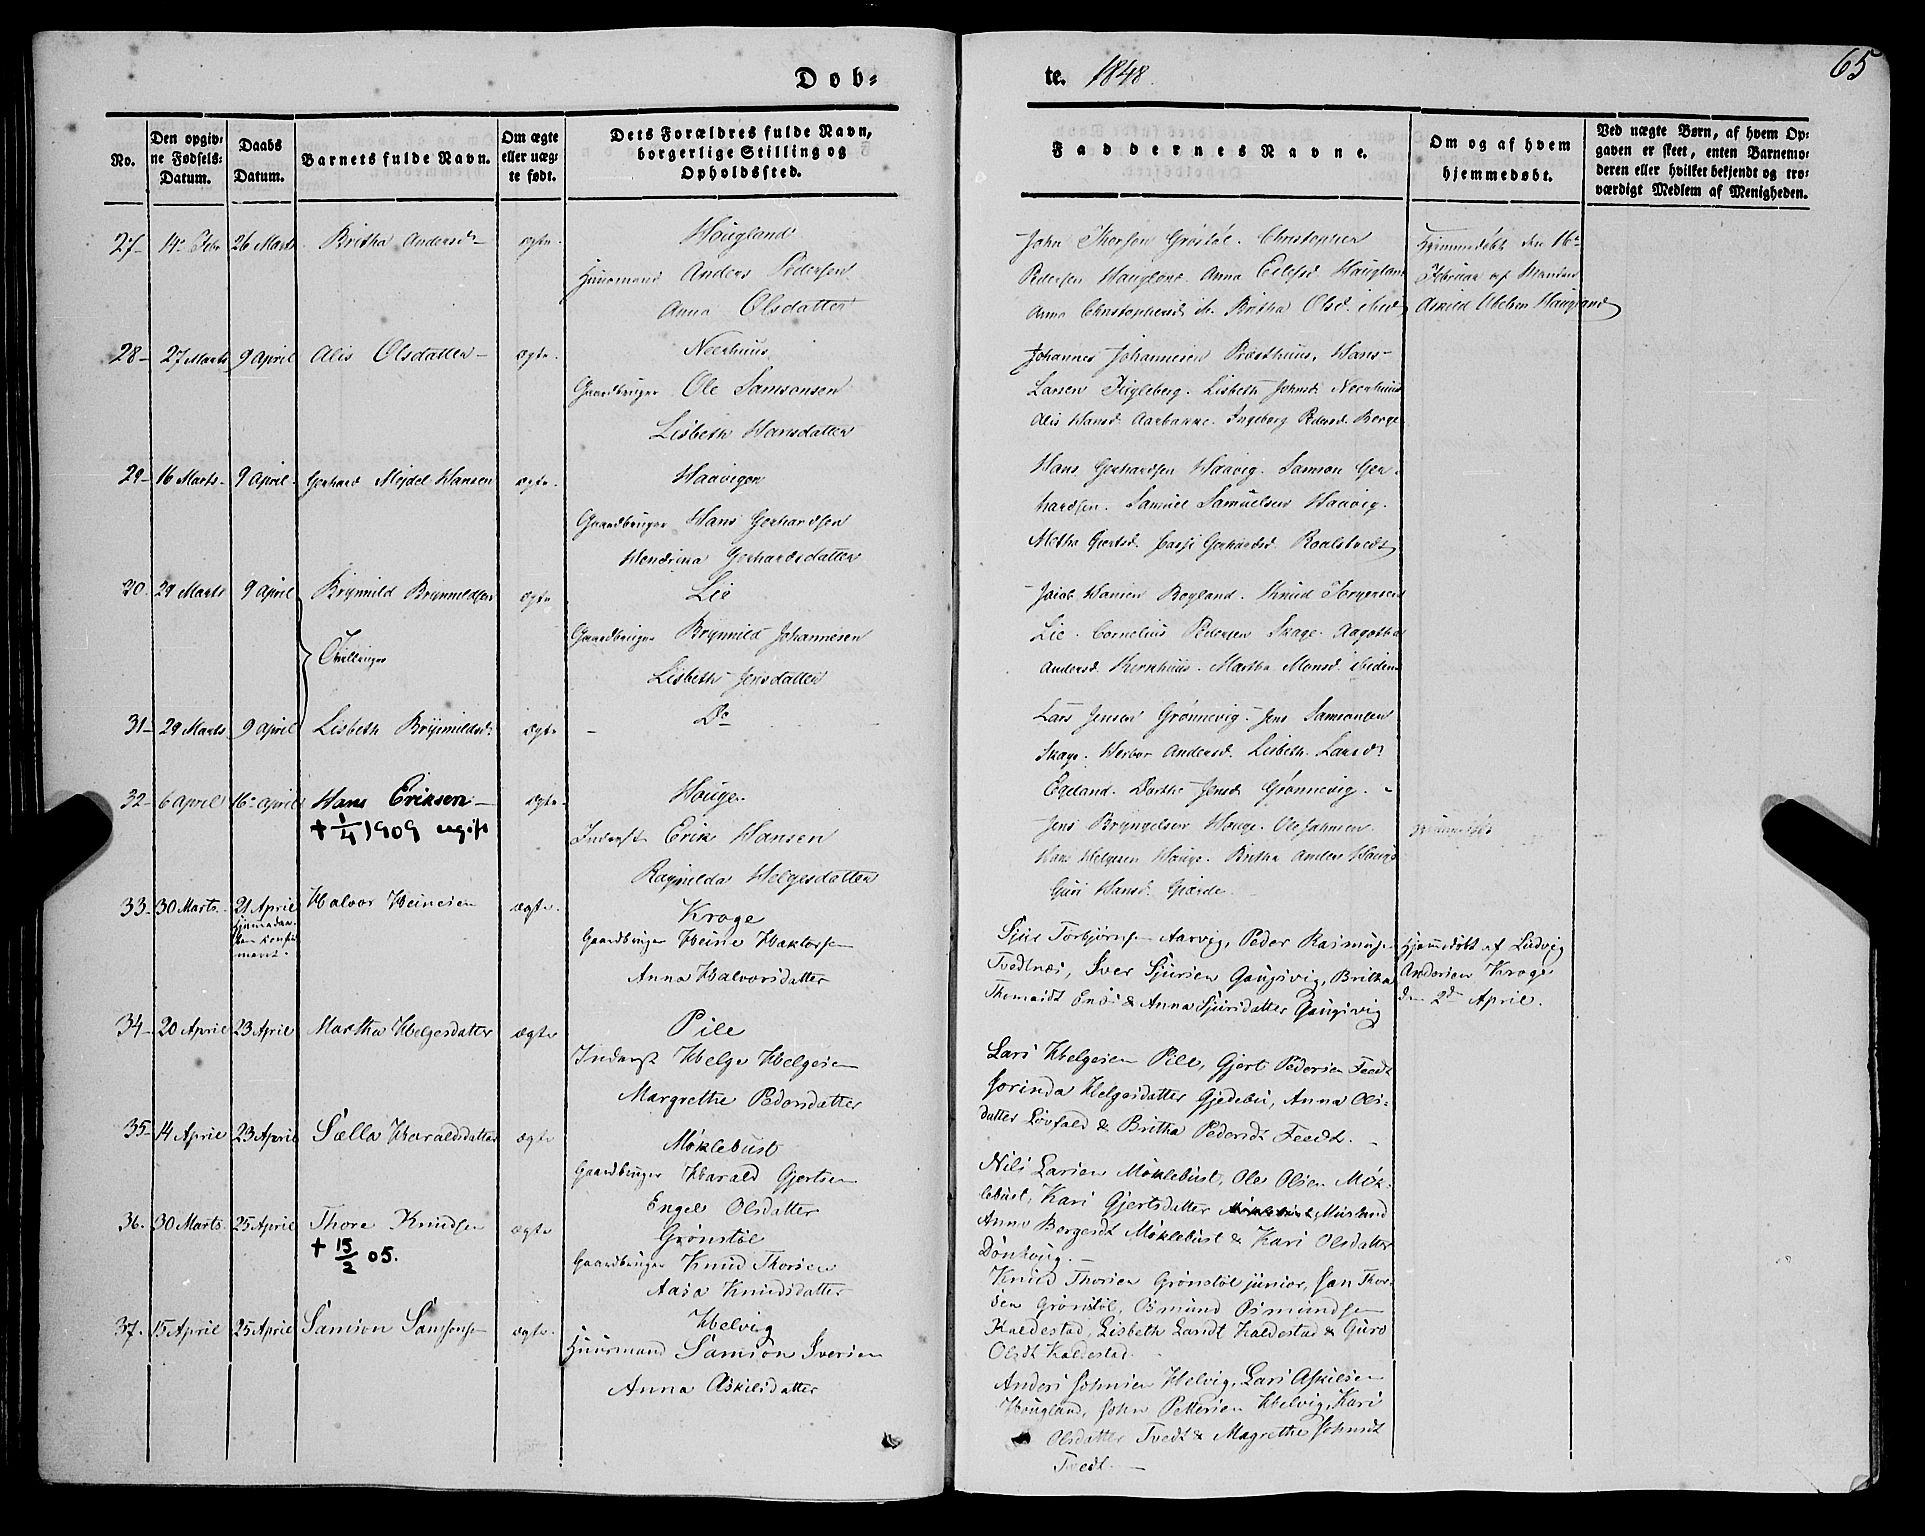 65
Dob-
te. 1848.
No.
Den opgiv-
ne Fødsels-
Datum.
Daabs
Datum.
Barnets fulde Navn.
Om ægte
eller uæg-
te født.
Dets Forældres fulde Navn,
borgerlige Stilling og
Opholdssted.
Faddernes Navne.
Om og af hvem
hjemmedøbt.
Ved uægte Børn, af hvem Op-
gaven er skeet, enten Barnemo-
deren eller hvilket bekjendt og tro-
værdigt Medlem af Menigheden.
27- 14 Febr 26 Marts Britha Andersd- ægte.
Haugland
Huusmand Anders Pedersen
Anna Olsdatter
John Thorsen Grøstøl. Christopher
Pedersen Haugland. Anna Haugland
Anna Britha Olsd.
Hjemmedøbt den 16
Februar af
Askild Haugland
28- 27 Marts 9 April Alis Olsdatter- ægte.
Neerhuus
Gaardbruger Ole Samsonsen
Lisbeth Hansdatter
Johannes Johannesen Præsthuus, Hans
Larsen Fugleberg. Lisbeth Johnsd. Neerhuus
Alis Hansd. Ingeborg Pedersd. Berge
29- 16 Marts- 9 April- Gerhard Mejdel Hansen ægte.
Haavigen
Gaardbruger Hans Gerhardsen
Hendrina Gerhardsdatter
Hans Gerhardsen Haavig. Samson Ger-
hardsen. Samuel Samuelsen Haavig.
Metha Gjertsd. Gerhardsd. Roaldstvedt
30. 29 Marts 9 April Brynnild Brynnildsen ægte
Tvillinger
Lie
Gaardbruger Brynnild Johannesen
Lisbeth Jensdatter
Jacob Hansen Røgland. Knud Torgersen
Lie. Cornelius Pedersen Skage. Aagotha
Andersd. Martha Monsd. ibidem
31- 29 Marts 9 April Lisbeth Brynnildsd. ægte
-
Do
Lars Jensen Grønnevig. Jens Samsonsen
Skage. Herbor Andersd. Lisbeth Larsd.
Egeland. Dorthe Jensd. Grønnevig.
32- 6 April 16 April Hans Eriksen- ægte.
+ 1/4 1909 ugift
Hauge
Inderst Erik Hansen
Ragnilda Helgesdatter
Jens Bryngelsen Hauge. Ole Johnsen
Hans Helgesen Hauge. Britha Anders Hauge
Guri Hansd. Gjerde
hjemmedøbt
33- 30 Marts. 21 April Halvor Heinesen ægte.
Hjemmedaa-
ben confir-
meret.
Kroge
Gaardbruger Heine Haktorsen
Anna Halvorsdatter
Sjur Torbjørnsen Aarvig, Peder Rasmusen
Tvedtnæs, Iver Sjursen Gaugsvig, Britha
Thomasdt Enæs & Anna Sjursdatter Gaugsvig
Hjemmedøbt af Ludvig
Andersen Kroge
den 2den April.
34- 20 April 23 April Martha Helgesdatter ægte
Pile
Inderst Helge Helgesen
Margrethe Pedersdatter
Lars Helgesen Pile, Gjert Pedersen Feedt
Jorinda Helgesdatter Gjedebø, Anna Ols-
datter Løvfald & Britha Pedersdt Feedt.
35- 14 April 23 April Sælla Haraldsdatter ægte
Møklebust
Gaardbruger Harald Gjertsen
Engel Olsdatter
Nils Larsen Møklebust, Ole Olsen Møk-
lebust, Kari Gjertsdatter Musland
Anna Borgesdt Møklebust & Kari Olsdatter
Dønhoug.
36. 30 Marts 25 April Thore Knudsen ægte
+ 15/2 05.
Grønstøl
Gaardbruger Knud Thorsen
Aasa Knudsdatter
Knud Thorsen Grønstøl junior, Jon Thor-
sen Grønstøl, Osmund Osmundsen
Kaldestad, Lisbeth Larsdt Kaldestad & Guro
Olsdt Kaldestad.
37. 15 April 25 April Samson Samsonsen ægte.
Helvig
Huusmand Samson Iversen
Anna Askilsdatter
Anders Johnsen Helvig, Lars Askilsen
Haugland, John Pettersen Helvig, Kari
Olsdatter Tvedt & Magrethe Johnsdt
Tvedt.